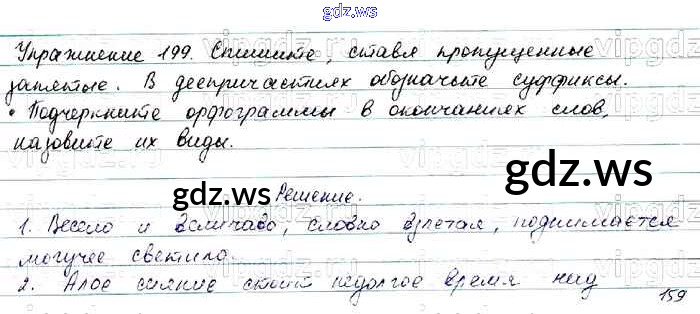 gdz.ws
Упражнение 199. Спишите, ставя пропущенные
запятые. В деепричастиях обозначьте суффиксы.
• Подчеркните орфограммы в окончаниях слов,
назовите их виды.
gdz.ws
gdz.ws
Решение.
1. Весело и величаво, словно взлетая, поднимается
могучее светило.
2. Алое сияние стоит недолгое время над
159